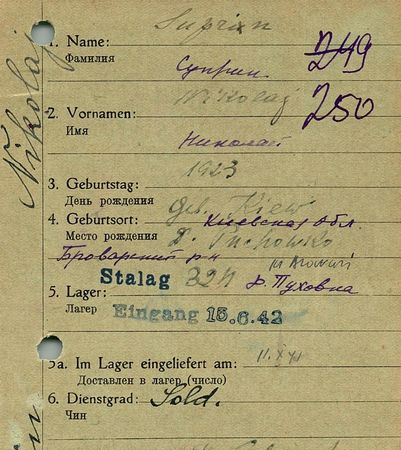 Suprin
1. Name:
Фамилия
Суприн
249
250
Nikolaj
2. Vornamen:
Имя
Николай
1923
3. Geburtstag:
День рождения
geb. Kiew
4. Geburtsort: Киевская обл.
Место рождения
D. Puchowko
Броварский р-н
Stalag 32
д. Пуховка
5. Lager:
Лагерь
Eingang 15.6.42
5a. Im Lager eingeliefert am:
Доставлен в лагер (число)
6. Dienstgrad: Sold.
Чин
Nikolaj